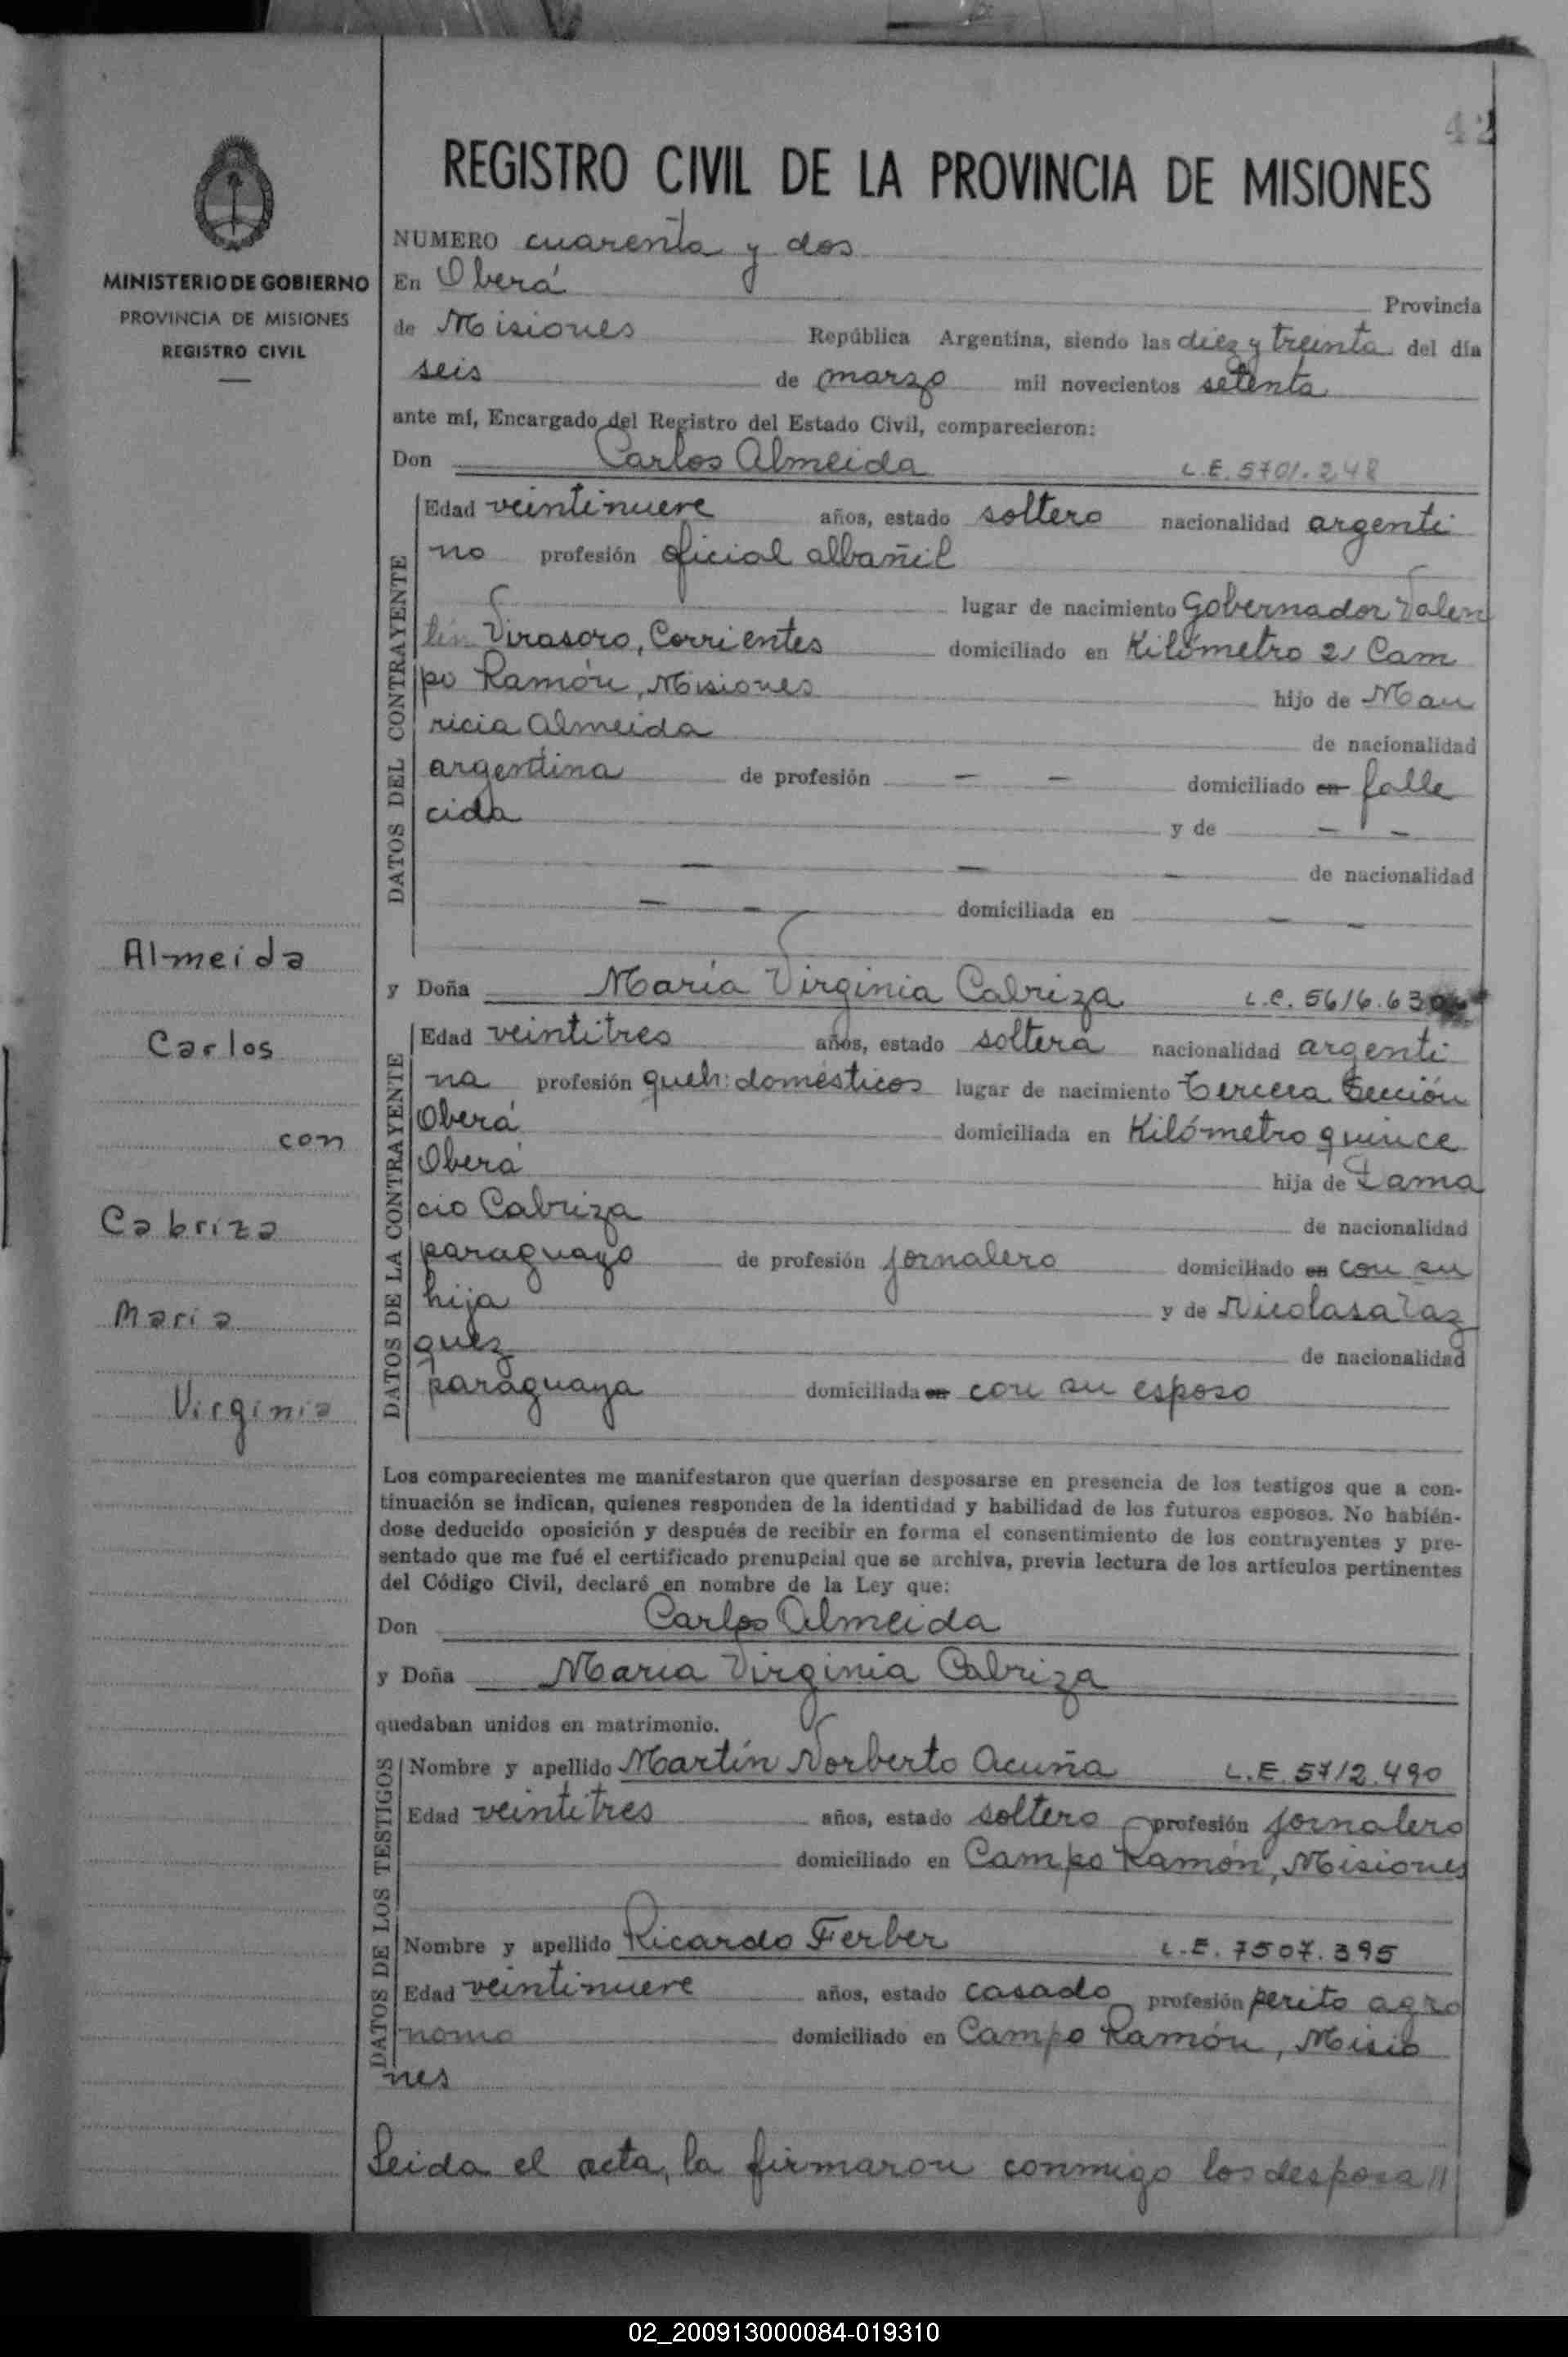 42
REGISTRO CIVIL DE LA PROVINCIA DE MISIONES
MINISTERIO DE GOBIERNO
PROVINCIA DE MISIONES
REGISTRO CIVIL
NUMERO cuarenta y dos
En Oberá Provincia
de Misiones República Argentina, siendo las diez y treinta del día
seis de marzo mil novecientos setenta
ante mí, Encargado del Registro del Estado Civil, comparecieron:
Don Carlos Almeida L.E. 5701.248
DATOS DEL CONTRAYENTE
Edad veintinueve años, estado soltero nacionalidad argenti
no profesión oficial albañil
lugar de nacimiento Gobernador Valen
tín Virasoro, Corrientes domiciliado en Kilómetro 2, Cam
po Ramón, Misiones hijo de Mau
ricia Almeida de nacionalidad
argentina de profesión — — domiciliado en falle
cida y de — —
— — — de nacionalidad
— — domiciliada en — —
Almeida
Carlos
con
Cabriza
Maria
Virginia
y Doña María Virginia Cabriza L.C. 5616.630
DATOS DE LA CONTRAYENTE
Edad veintitres años, estado soltera nacionalidad argenti
na profesión queh: domésticos lugar de nacimiento Tercera Sección
Oberá domiciliada en Kilómetro quince
Oberá hija de Dama
cio Cabriza de nacionalidad
paraguayo de profesión jornalero domiciliado en con su
hija y de Nicolasa Vaz
quez de nacionalidad
paraguaya domiciliada en con su esposo
Los comparecientes me manifestaron que querían desposarse en presencia de los testigos que a con-
tinuación se indican, quienes responden de la identidad y habilidad de los futuros esposos. No habién-
dose deducido oposición y después de recibir en forma el consentimiento de los contrayentes y pre-
sentado que me fué el certificado prenupcial que se archiva, previa lectura de los artículos pertinentes
del Código Civil, declaré en nombre de la Ley que:
Don Carlos Almeida
y Doña María Virginia Cabriza
quedaban unidos en matrimonio.
DATOS DE LOS TESTIGOS
Nombre y apellido Martín Norberto Acuña L.E. 5712.490
Edad veintitres años, estado soltero profesión jornalero
domiciliado en Campo Ramón, Misiones
Nombre y apellido Ricardo Ferber L.E. 7507.395
Edad veintinueve años, estado casado profesión perito agro
nomo domiciliado en Campo Ramón, Misio
nes
Leida el acta, la firmaron conmigo los desposa//
02_200913000084-019310